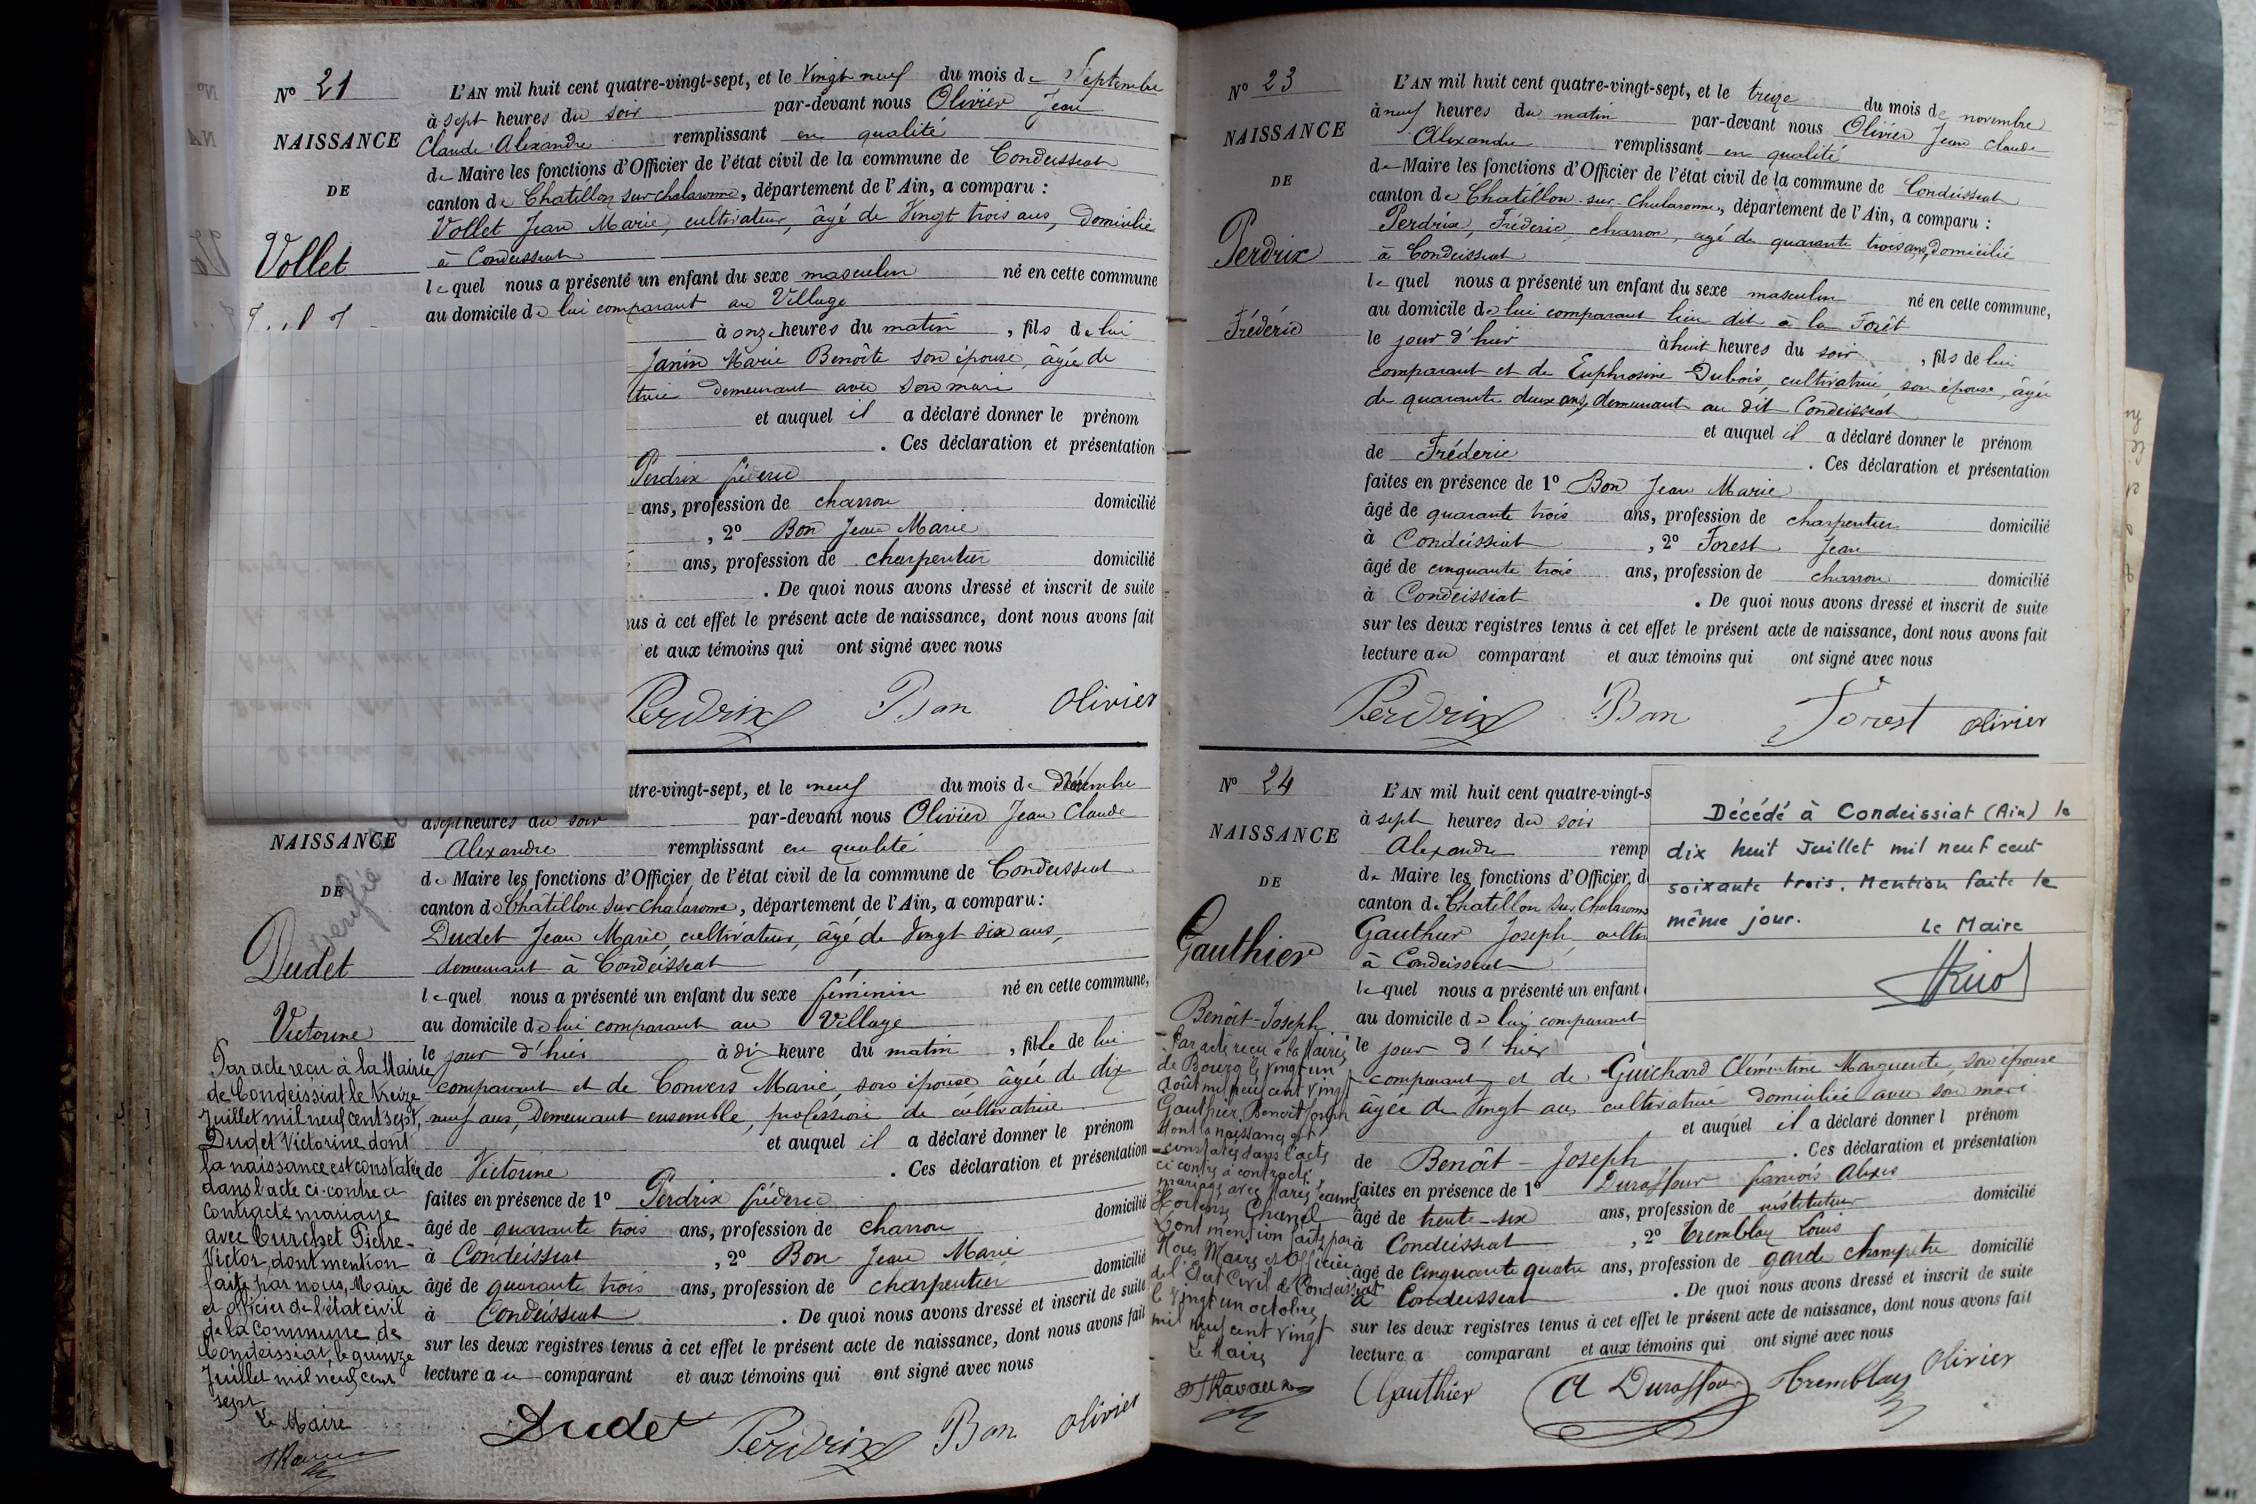 N° 21
NAISSANCE
DE
Vollet
L'AN mil huit cent quatre-vingt-sept, et le Vingt neuf du mois de Septembre
à sept heures du soir par-devant nous Olivier Jean
Claude Alexandre remplissant en qualité
de Maire les fonctions d'Officier de l'état civil de la commune de Condeissiat
canton de Chatillon sur chalaronne, département de l'Ain, a comparu :
Vollet Jean Marie, cultivateur, âgé de Vingt trois ans, domicilié
à Condeissiat
lequel nous a présenté un enfant du sexe masculin né en cette commune
au domicile de lui comparant au Village
à onze heures du matin, fils de lui
Janin Marie Benoîte son épouse, âgée de
trice demeurant avec son mari
et auquel il a déclaré donner le prénom
. Ces déclaration et présentation
Perdrix fréderic
ans, profession de charron domicilié
, 2° Bon Jean Marie
ans, profession de charpentier domicilié
. De quoi nous avons dressé et inscrit de suite
nus à cet effet le présent acte de naissance, dont nous avons fait
et aux témoins qui ont signé avec nous
Perdrix Bon Olivier
NAISSANCE
DE
Dudet
Victorine
vérifié
Par acte reçu à la Mairie
de Condeissiat le treize
Juillet mil neuf cent sept,
Dudet Victorine dont
la naissance est constatée
dans l'acte ci-contre a
contracté mariage
avec Curchet Pierre-
Victor, dont mention
faite par nous, Maire
et officier de l'état civil
de la commune de
Condeissiat, le quinze
Juillet mil neuf cent
sept
Le Maire
tre-vingt-sept, et le neuf du mois de Décembre
à sept heures du soir par-devant nous Olivier Jean Claude
Alexandre remplissant en qualité
de Maire les fonctions d'Officier de l'état civil de la commune de Condeissiat
canton de Châtillon sur Chalaronne, département de l'Ain, a comparu:
Dudet Jean Marie, cultivateur, âgé de Vingt six ans,
demeurant à Condeissiat
lequel nous a présenté un enfant du sexe féminin né en cette commune,
au domicile de lui comparant au Village
le jour d'hier à dix heure du matin, fille de lui
comparant et de Convers Marie son épouse âgée de dix
neuf ans, Demeurant ensemble, profession de cultivatrice
et auquel il a déclaré donner le prénom
de Victorine . Ces déclaration et présentation
faites en présence de 1° Perdrix fréderic
âgé de quarante trois ans, profession de charron domicilié
à Condeissiat , 2° Bon Jean Marie
âgé de quarante trois ans, profession de charpentier domicilié
à Condeissiat . De quoi nous avons dressé et inscrit de suite
sur les deux registres tenus à cet effet le présent acte de naissance, dont nous avons fait
lecture au comparant et aux témoins qui ont signé avec nous
Dudet Perdrix Bon Olivier
N° 23
NAISSANCE
DE
Perdrix
Fréderic
L'AN mil huit cent quatre-vingt-sept, et le treize du mois de novembre
à neuf heures du matin par-devant nous Olivier Jean Claude
Alexandre remplissant en qualité
de Maire les fonctions d'Officier de l'état civil de la commune de Condeissiat
canton de Chatillon-sur-Chalaronne, département de l'Ain, a comparu :
Perdrix, Fréderic, charron, agé de quarante trois ans, domicilié
à Condeissiat
lequel nous a présenté un enfant du sexe masculin né en cette commune,
au domicile de lui comparant lieu dit à la Forêt
le jour d'hier à huit heures du soir, fils de lui
comparant et de Euphrosine Dubois, cultivatrice, son épouse, âgée
de quarante deux ans, demeurant au dit Condeissiat
et auquel il a déclaré donner le prénom
de Fréderic . Ces déclaration et présentation
faites en présence de 1° Bon Jean Marie
âgé de quarante trois ans, profession de charpentier domicilié
à Condeissiat , 2° Forest Jean
âgé de cinquante trois ans, profession de charron domicilié
à Condeissiat . De quoi nous avons dressé et inscrit de suite
sur les deux registres tenus à cet effet le présent acte de naissance, dont nous avons fait
lecture au comparant et aux témoins qui ont signé avec nous
Perdrix Bon Forest Olivier
N° 24
NAISSANCE
DE
Gauthier
Benoît-Joseph
Par acte reçu à la Mairie
de Bourg le vingt un
août mil neuf cent vingt
Gauthier Benoit Joseph
dont la naissance est
constatée dans l'acte
ci contre a contracté
mariage avec Marie Jeanne
Hortense Chanel
Dont mention faite par
Nous Maire et Officier
de l'Etat Civil de Condeissiat
le vingt un octobre
mil neuf cent vingt
Le Maire
L'AN mil huit cent quatre-vingt-s
à sept heures du soir
Alexandre remp
de Maire les fonctions d'Officier d
canton de Chatillon sur Chalaronne
Gauthier Joseph, cultiv
à Condeissiat
lequel nous a présenté un enfant
au domicile de lui comparant
le jour d'hier
comparant et de Guichard Clémentine Marguerite, son épouse
âgée de Vingt ans cultivatrice domiciliée avec son mari
et auquel il a déclaré donner l prénom
de Benoît-Joseph . Ces déclaration et présentation
faites en présence de 1° Duraffour francois Alexis
âgé de trente-six ans, profession de instituteur domicilié
à Condeissiat , 2° Tremblay Louis
âgé de Cinquante quatre ans, profession de garde champetre domicilié
à Condeissiat . De quoi nous avons dressé et inscrit de suite
sur les deux registres tenus à cet effet le présent acte de naissance, dont nous avons fait
lecture a comparant et aux témoins qui ont signé avec nous
Gauthier A Duraffour Tremblay Olivier
Décédé à Condeissiat (Ain) le
dix huit Juillet mil neuf cent
soixante trois. Mention faite le
même jour. Le Maire